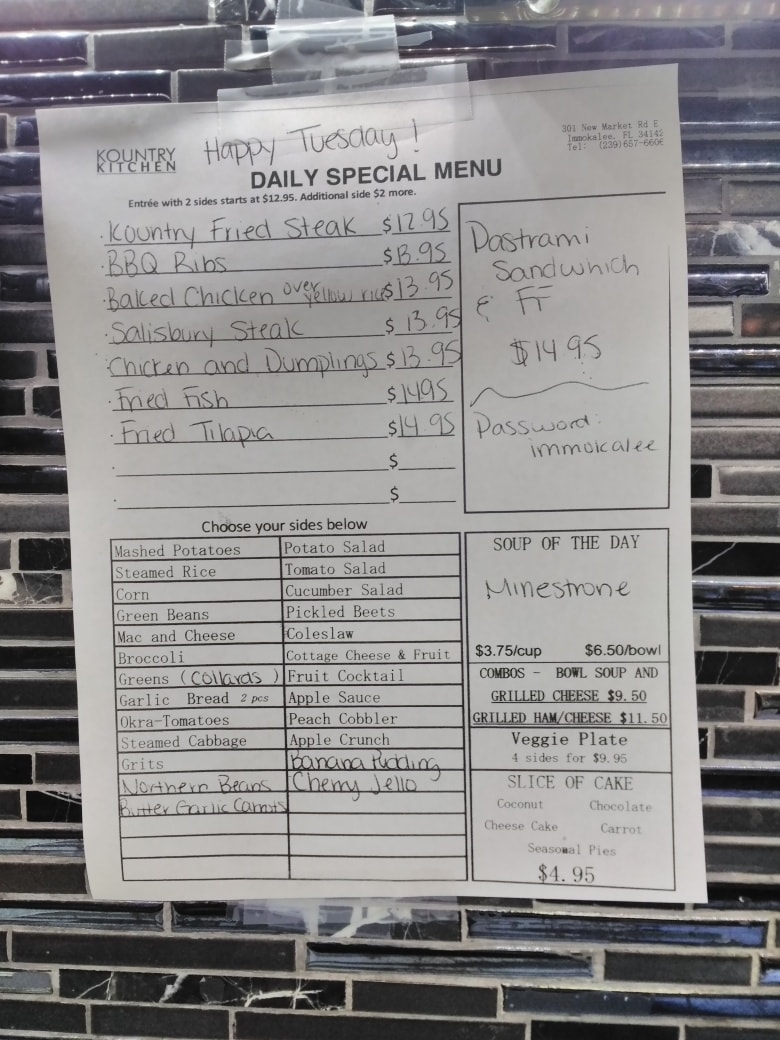 KOUNTRY
KITCHEN
Happy Tuesday!
301 New Market Rd E
Immokalee, FL 34142
Tel: (239)657-660
DAILY SPECIAL MENU
Entrée with 2 sides starts at $12.95. Additional side $2 more.
Kountry Fried Steak $12.95
BBQ Ribs $13.95
Baked Chicken over yellow rice $13.95
Salisbury Steak $13.95
Chicken and Dumplings $13.95
Fried Fish $14.95
Fried Tilapia $14.95
$
$
Pastrami
Sandwhich
& FF
$14.95
Password:
immokalee
Choose your sides below
Mashed Potatoes Potato Salad
Steamed Rice Tomato Salad
Corn Cucumber Salad
Green Beans Pickled Beets
Mac and Cheese Coleslaw
Broccoli Cottage Cheese & Fruit
Greens (Collards) Fruit Cocktail
Garlic Bread 2 pcs Apple Sauce
Okra-Tomatoes Peach Cobbler
Steamed Cabbage Apple Crunch
Grits Banana Pudding
Northern Beans Cherry Jello
Butter Garlic Carrots
SOUP OF THE DAY
Minestrone
$3.75/cup $6.50/bowl
COMBOS - BOWL SOUP AND
GRILLED CHEESE $9.50
GRILLED HAM/CHEESE $11.50
Veggie Plate
4 sides for $9.95
SLICE OF CAKE
Coconut Chocolate
Cheese Cake Carrot
Seasonal Pies
$4.95